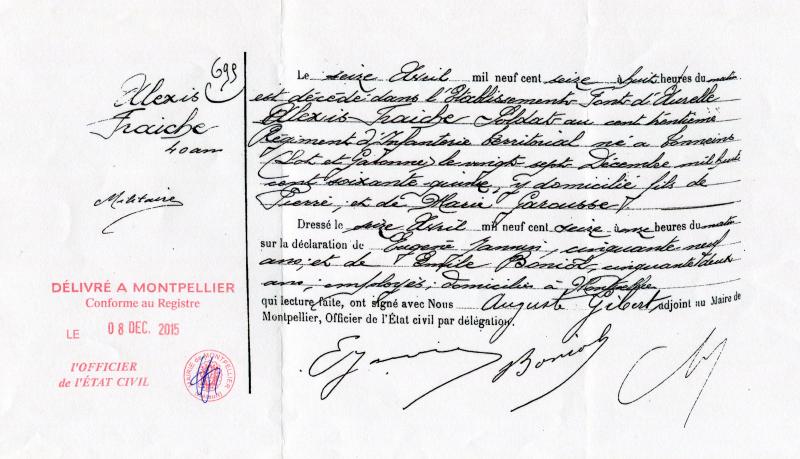 699
Alexis
Fraiche
40 ans
Militaire
DÉLIVRÉ A MONTPELLIER
Conforme au Registre
LE 08 DEC. 2015
l'OFFICIER
de l'ÉTAT CIVIL
MAIRIE DE MONTPELLIER
Le seize Avril mil neuf cent seize à huit heures du matin
est décédé dans l'Etablissement Font d'Aurelle
Alexis Fraiche Soldat au cent trentième
Régiment d'Infanterie territorial né à Tonneins
(Lot et Garonne) le vingt sept Décembre mil huit
cent soixante quinze, y domicilié fils de
Pierre, et de Marie Garousse
Dressé le seize Avril mil neuf cent seize à onze heures du matin
sur la déclaration de Eugène, cinquante neuf
ans, et de Emile Boniol, cinquante deux
ans, employés, domiciliés à Montpellier
qui lecture faite, ont signé avec Nous Auguste Gibert, adjoint au Maire de
Montpellier, Officier de l'État civil par délégation.
Boniol